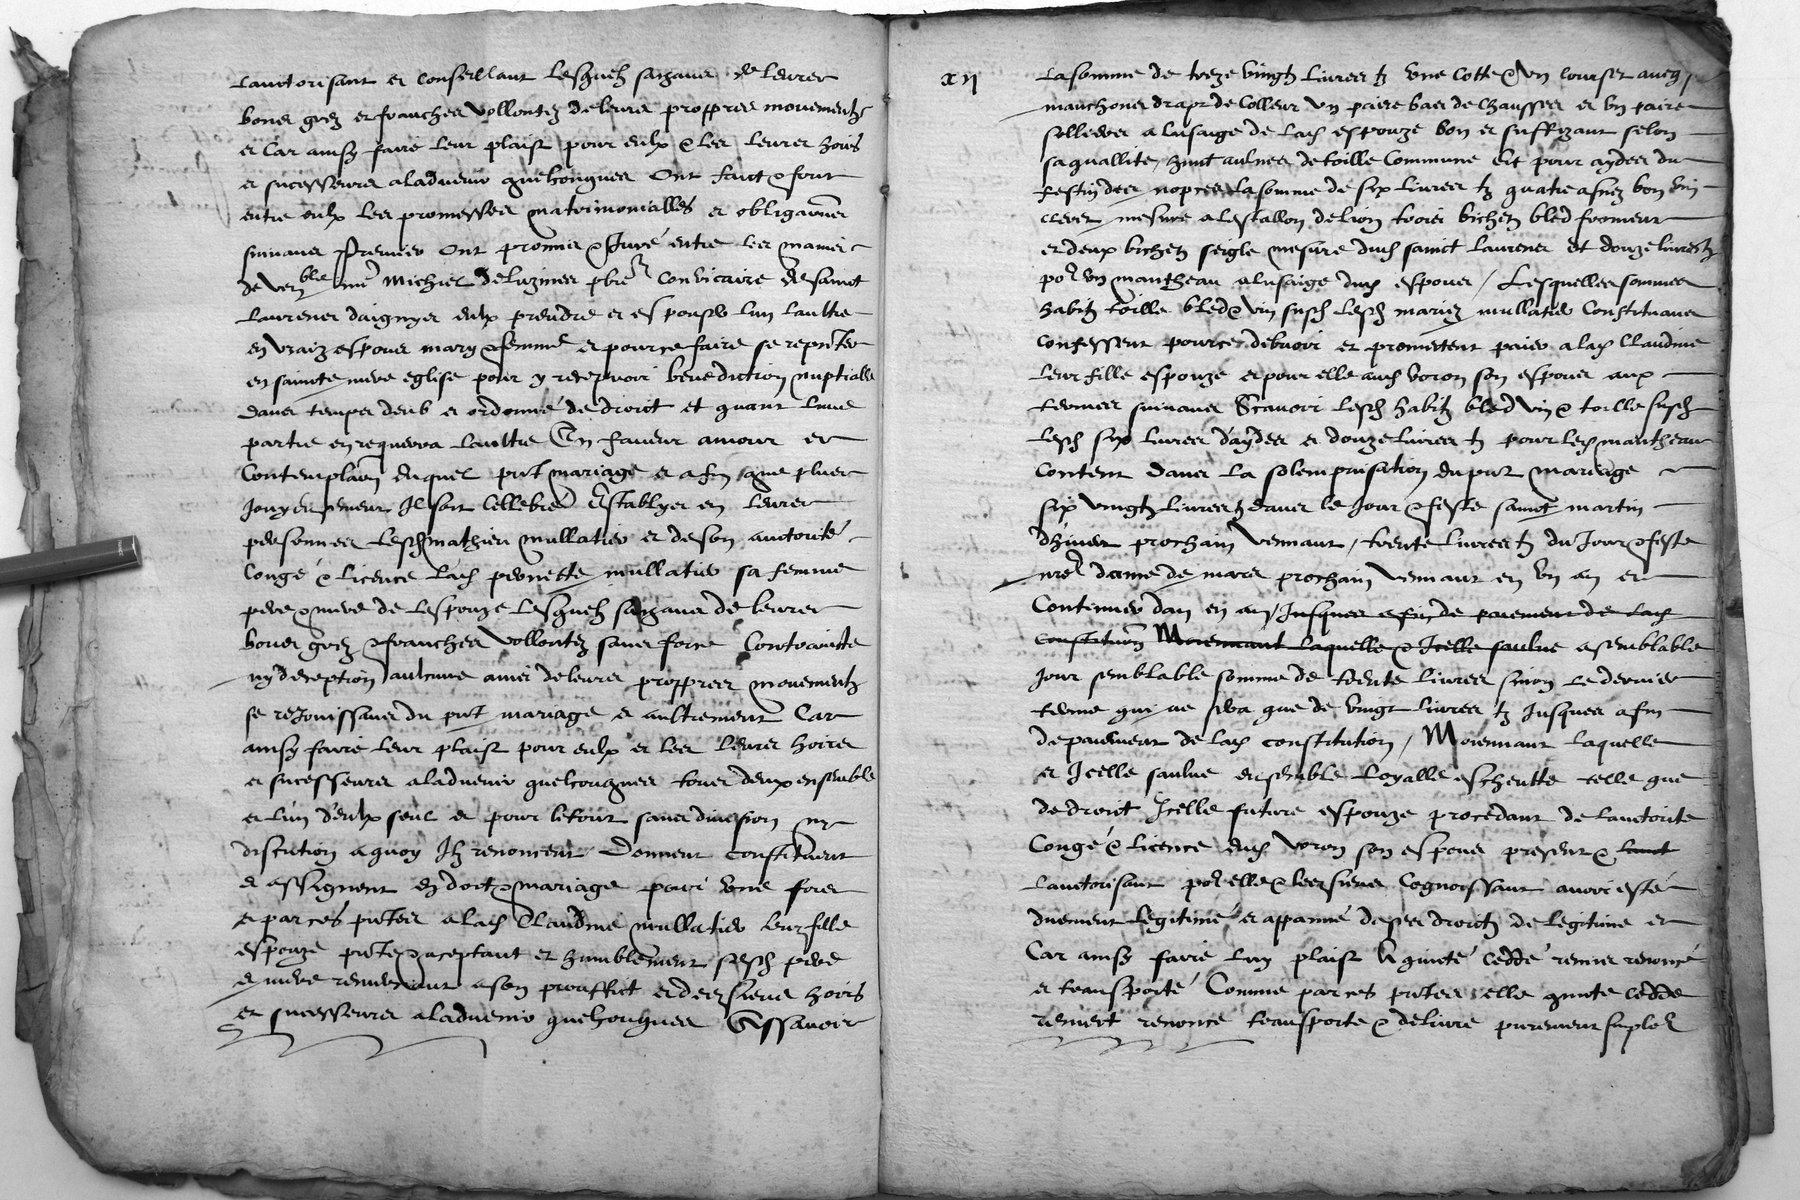 Lauctorisant et conseillant lesquelz sachans de leures
bones grez et franches vollontez de leurs proppres mouvementz
et car ainsy faire leur plaist pour eulx & les leures hoirs
et sucesseures aladvenir quelconques ont faict & font
entre eulx les promesses matrimonialles et obligaones
suivans Premier ont promis & Juré entre les mains
de verble mre Michiel deluzines pbre convicaire de sainct
Laurenes daignyes eulx prendre et espouser lun laultre
en vraiz espoues mary & femme et pource faire se repnter
en saincte mere eglise pour y recepvoir benediction nuptialle
dans temps deub et ordonné de droict et quant lune
partie en requerra laultre En faveur amour et
contemplaon duquel pnt mariage et afin que plus
Joyeusement Il soit cellebré Establyes en leures
personnes lesdz mathieu mullatier et de son auctorité
congé & licence ladz pernette mullatier sa femme
pere & mere de lespouze lesquelz sachans de leures
bones grez & franches vollontez sans force contraincte
ny deception aulcune ains de leurs proppres mouvementz
se rejouissans du pnt mariage et aultrement car
ainsy faire leur plaist pour eulx et les leures hoires
et sucesseures aladvenir quelconques tous deux ensemble
et lun deulx seul et pour le tout sans division ny
discution aquoy Ilz renoncent Donnent constituent
et assignent en dot & mariage pour une fois
et par ces pntes a ladz Claudine mullatier leur fille
espouze pnte & aceptant et humblement sesdz pere
et mere remerciant a son prouffict et des siens hoirs
et sucesseures aladvenir quelconques Assavoir
xij
La somme de treze vingtz livres tz une cotte & un courset avecq
manchones drapt de colleur un paire bas de chausses et un paire
solliers a lusaige de ladz espouze bon et suffizant selon
sa quallite, huict aulnes de toille commune Et pour ayder du
festin des nopces la somme de six livres tz quatre asnez bon vin
cleret mesure a lestallon de lion trois bichetz bled froment
et deux bichetz seigle mesure dudz sainct laurenes et douze livres tz
por un mantheau a lusaige dudz espoues / Lesquelles sommes
habitz toille bled & vin susdz lesdz mariez mullatier constituans
confessent pource debvoir et promectent paier a ladz Claudine
leur fille espouze et pour elle audz voron son espoues aux
termes suivans Scavoir lesdz habitz bled vin & toille susdz
lesdz six livres d'ayder et douze livres tz pour ledz mantheau
content davant la solempnisation du pnt mariage
six vingtz livres tz davant le Jour & feste sainct martin
d'hiver prochain venant, trente livres tz du Jour & feste
nre dame de mars prochain venant en un an et
continuer dan en an Jusques a fin de paiement de ladz
constitution Moiennant laquelle & Icelle saulve a semblable
jour semblable somme de trente livres sinon le dernier
terme qui ne sera que de vingt livres tz Jusques a fin
de paiement de ladz constitution, Moiennant laquelle
et Icelle saulve ensemble loyalle escheutte telle que
de droict Icelle future espouze procedant de lauctorite
congé & licence dudz voron son espoues present & luict
lauctorisant por elle & les siens cognoissant avoir esté
duement legitimé et appanné de ses droictz de legitime et
car ainsy faire luy plaist A quicté cedde remis renoncé
et transporté Comme par ces pntes elle quicte cedde
remect renonce transporte & delivre purement simplet